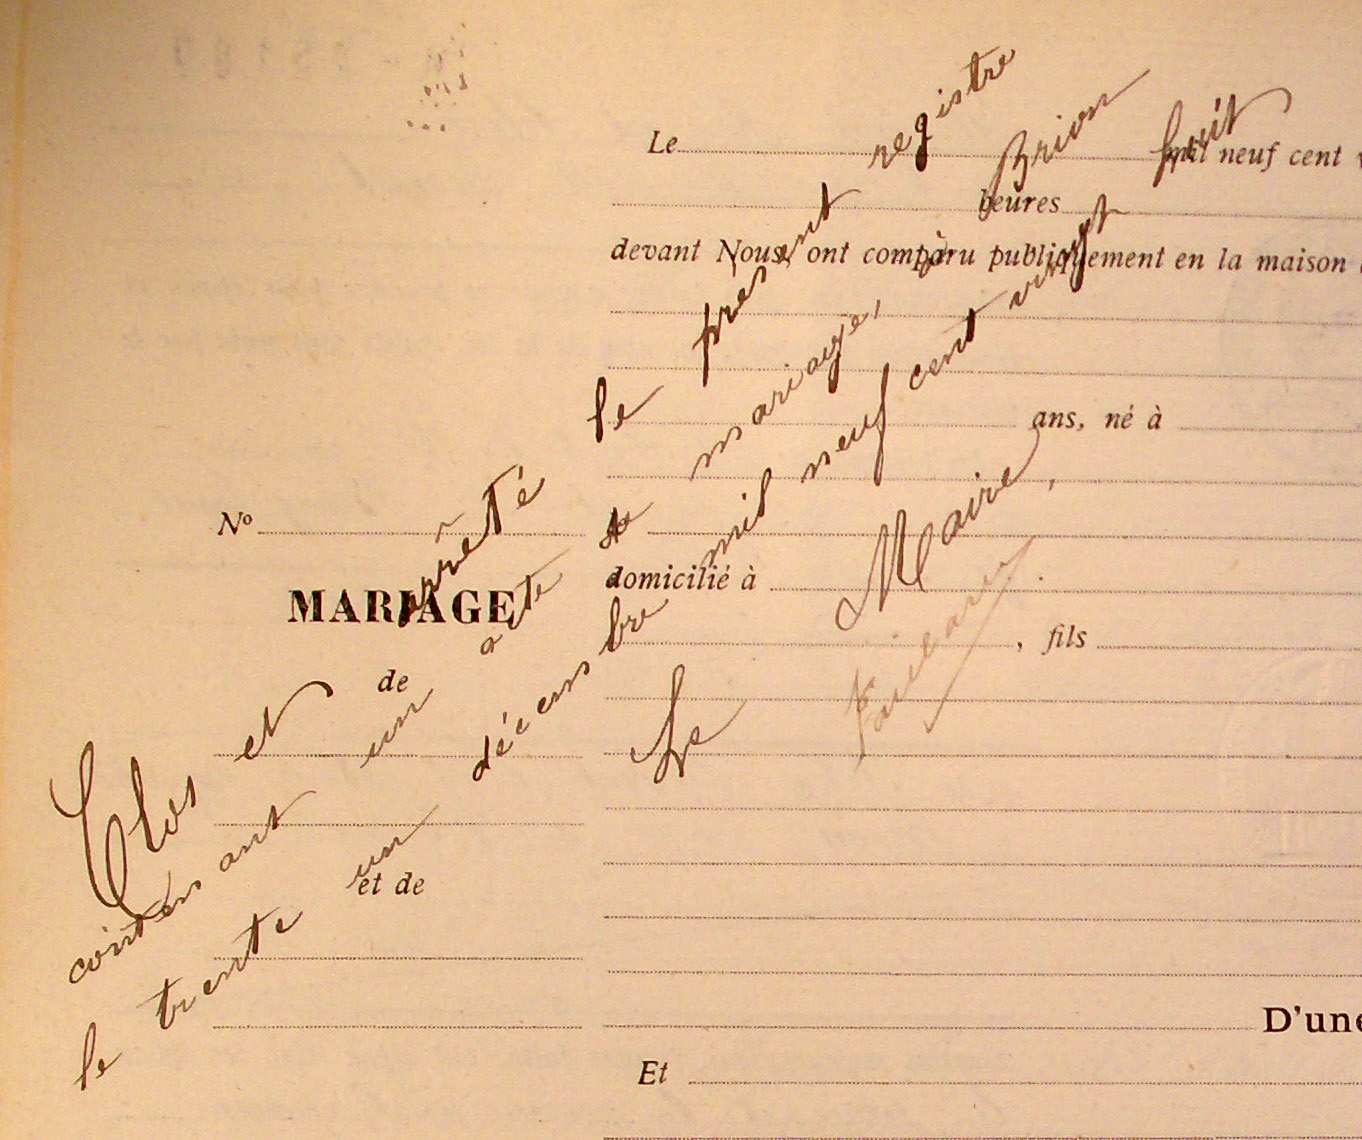 Le mil neuf cent
heures
devant Nous, ont comparu publiquement en la maison
ans, né à
No
domicilié à
MARIAGE
, fils
de
et de
D'une
Et
Clos et arrêté le présent registre
contenant un acte de mariage, à Brion
le trente un décembre mil neuf cent vingt huit
Le Maire,